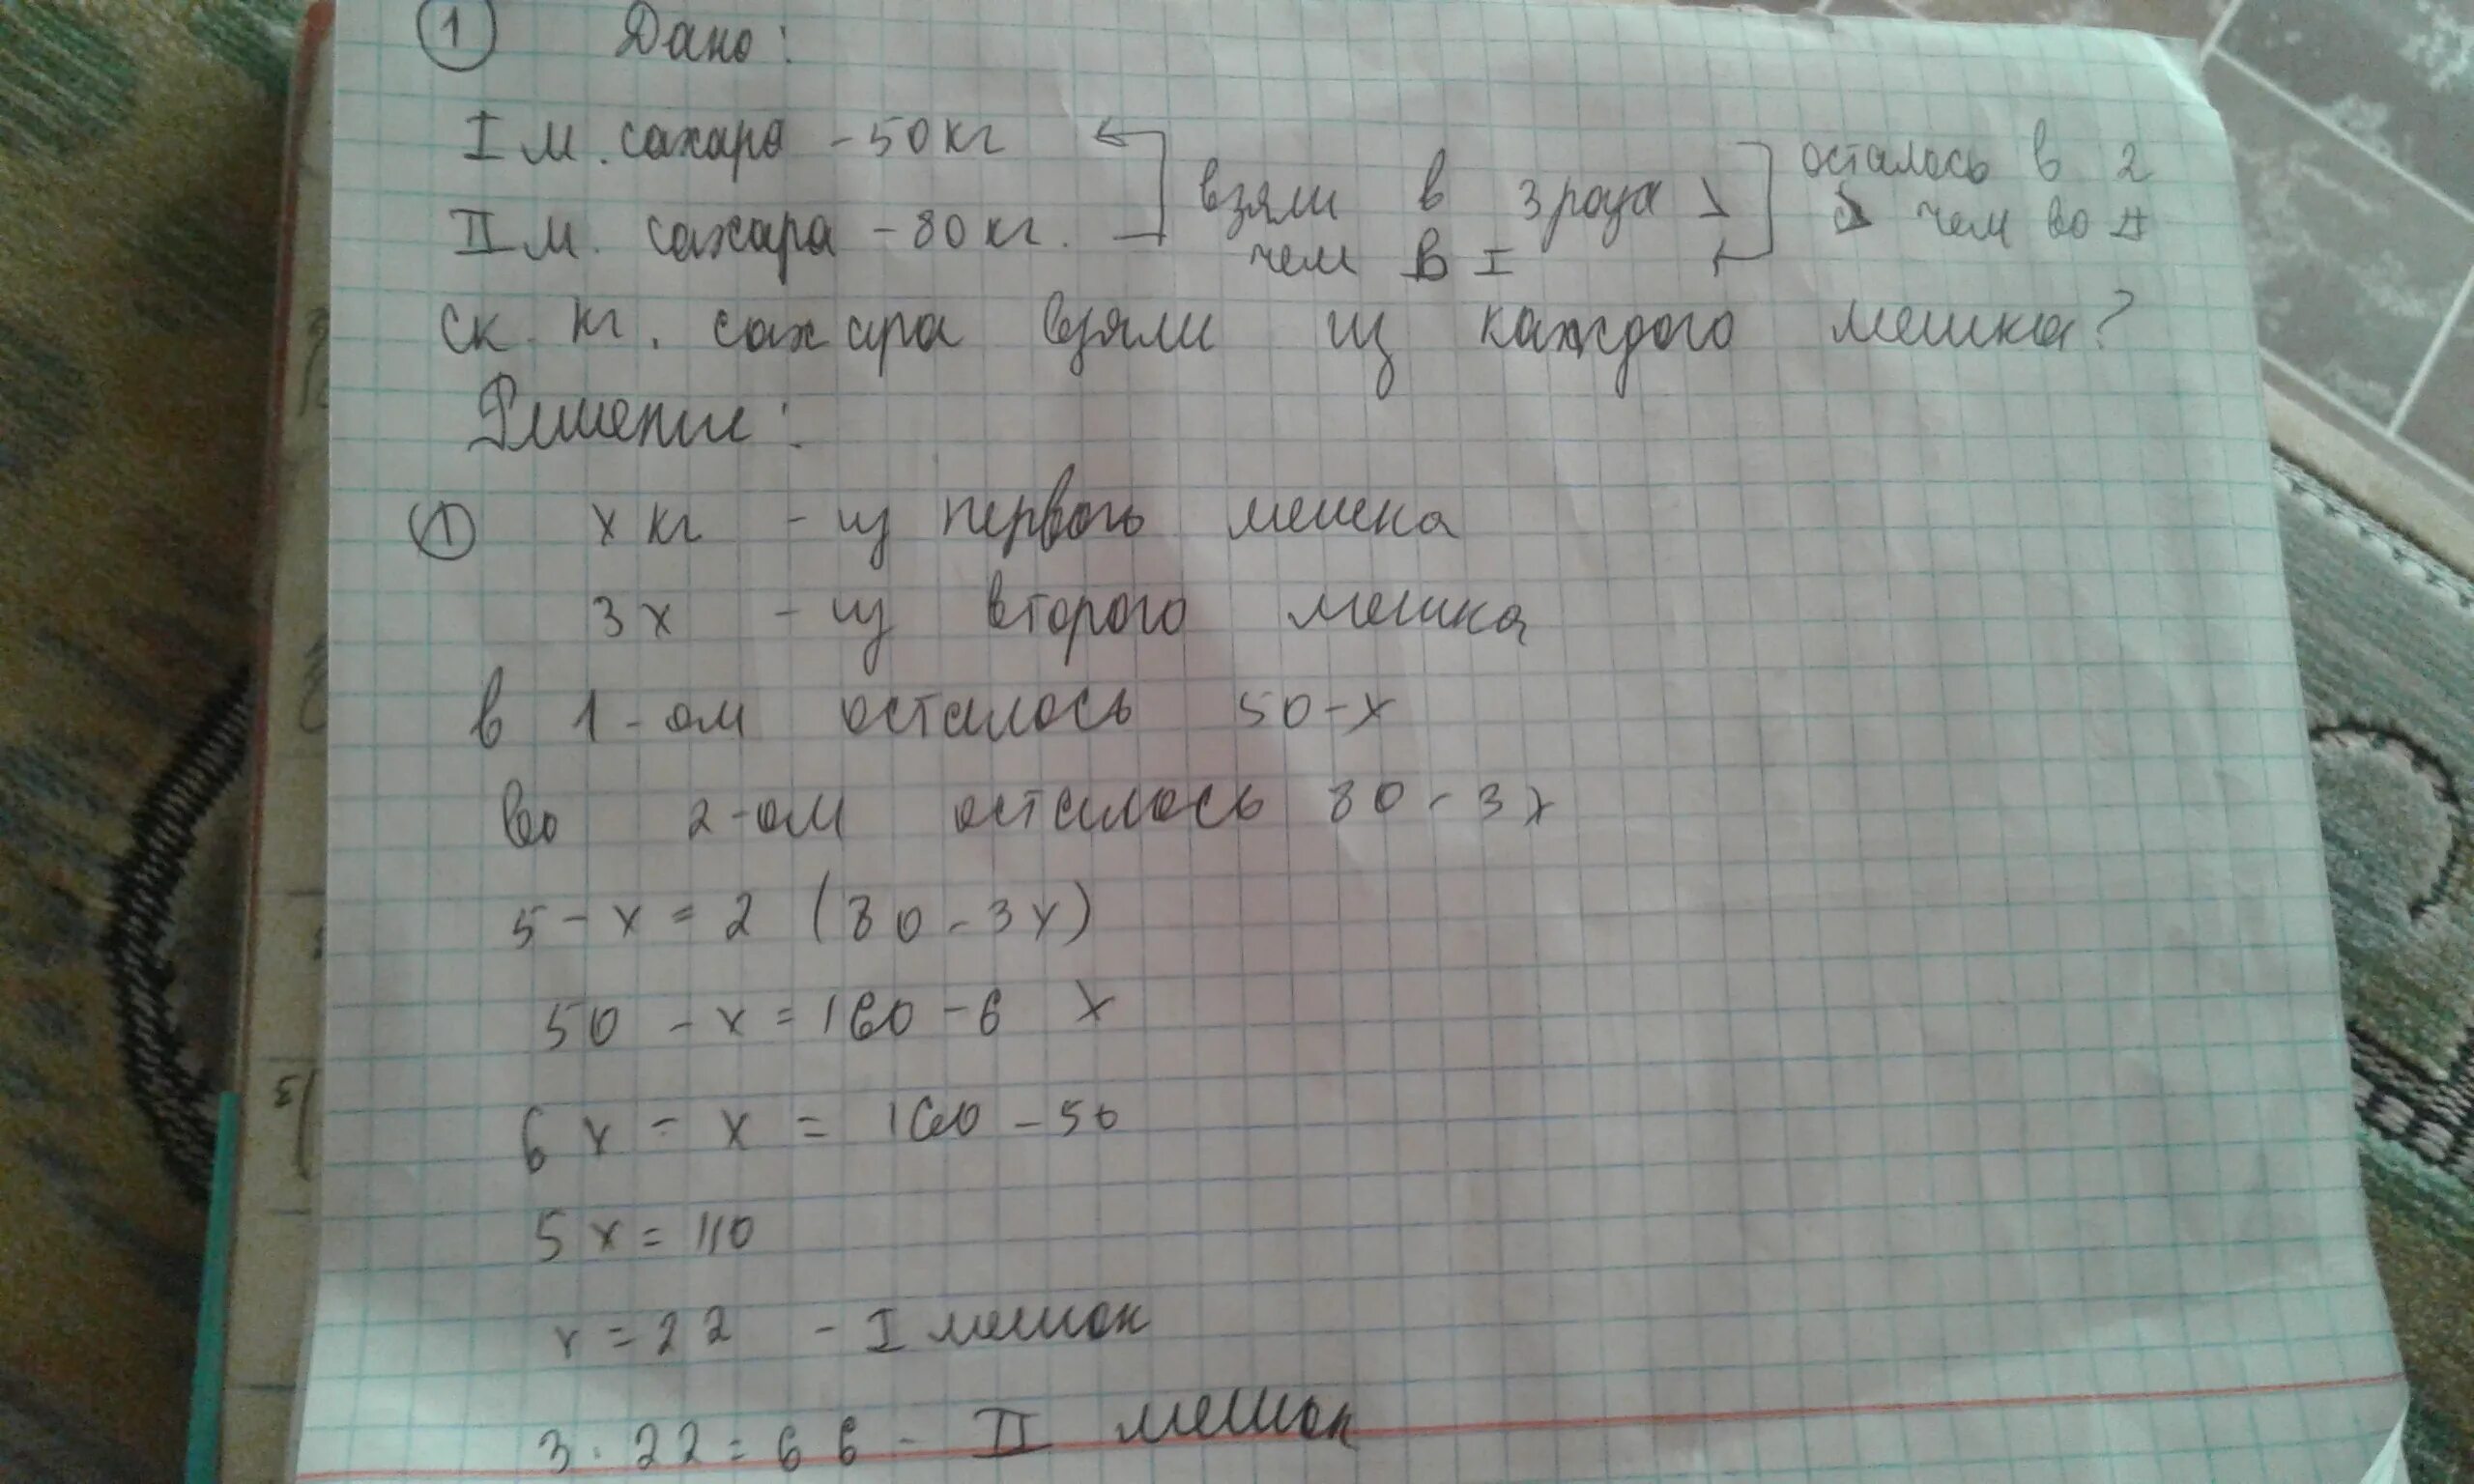 1 Дано:
I м. сахара - 50 кг
II м. сахара - 80 кг.
взяли в 3 раза >
чем в I
осталось в 2
> чем во II
ск. кг. сахара взяли из каждого мешка?
Решение:
1 x кг - из первого мешка
3x - из второго мешка
в 1-ом осталось 50-x
во 2-ом осталось 80-3x
5-x=2 (80-3x)
50-x=160-6x
6x-x=160-50
5x=110
x=22 - I мешок
3·22=66 - II мешок